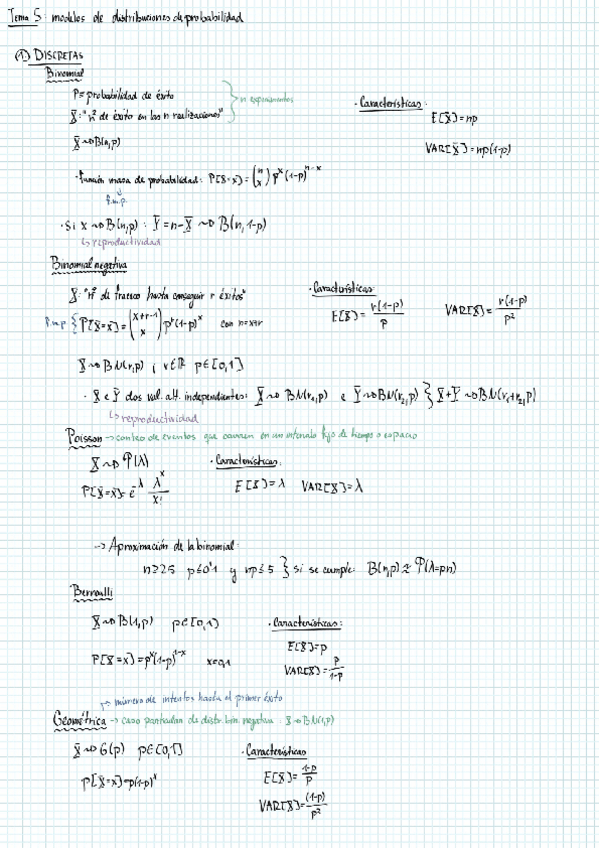 Tema 5: modelos de distribuciones de probabilidad
1. DISCRETAS
Binomial
P = probabilidad de éxito
X: "nº de éxito en las n realizaciones"
} n experimentos
X ~> B(n,p)
· Características:
E[X] = np
VAR[X] = np(1-p)
· función masa de probabilidad: P[X=x] = (n x) p^x (1-p)^n-x
f.m.p.
· Si X ~> B(n,p) : Y = n-X ~> B(n,1-p)
↳ reproductividad
Binomial negativa
X: "nº de fracaso hasta conseguir r éxitos"
f.m.p { P[X=x] = (x+r-1 x) p^r (1-p)^x con n=x+r
· Características:
E[X] = r(1-p)/p
VAR[X] = r(1-p)/p²
X ~> BN(r,p) ; r∈ℝ p∈[0,1]
· X e Y dos val. alt. independientes: X ~> BN(r₁,p) e Y ~> BN(r₂,p) } X+Y ~> BN(r₁+r₂,p)
↳ reproductividad
Poisson → conteo de eventos que ocurren en un intervalo fijo de tiempo o espacio
X ~> P(λ)
P[X=x] = e^-λ λ^x/x!
· Características:
E[X] = λ VAR[X] = λ
--> Aproximación de la binomial:
n≥25 p≤0'1 y np≤5 } si se cumple: B(n,p) ≈ P(λ=pn)
Bernoulli
X ~> B(1,p) p∈[0,1]
P[X=x] = p^x (1-p)^1-x x=0,1
· Características:
E[X] = p
VAR[X] = p/1-p
→ número de intentos hasta el primer éxito
Geométrica → caso particular de distr. bin. negativa : X ~> BN(1,p)
X ~> G(p) p∈[0,1]
P[X=x] = p(1-p)^x
· Características
E[X] = 1-p/p
VAR[X] = (1-p)/p²